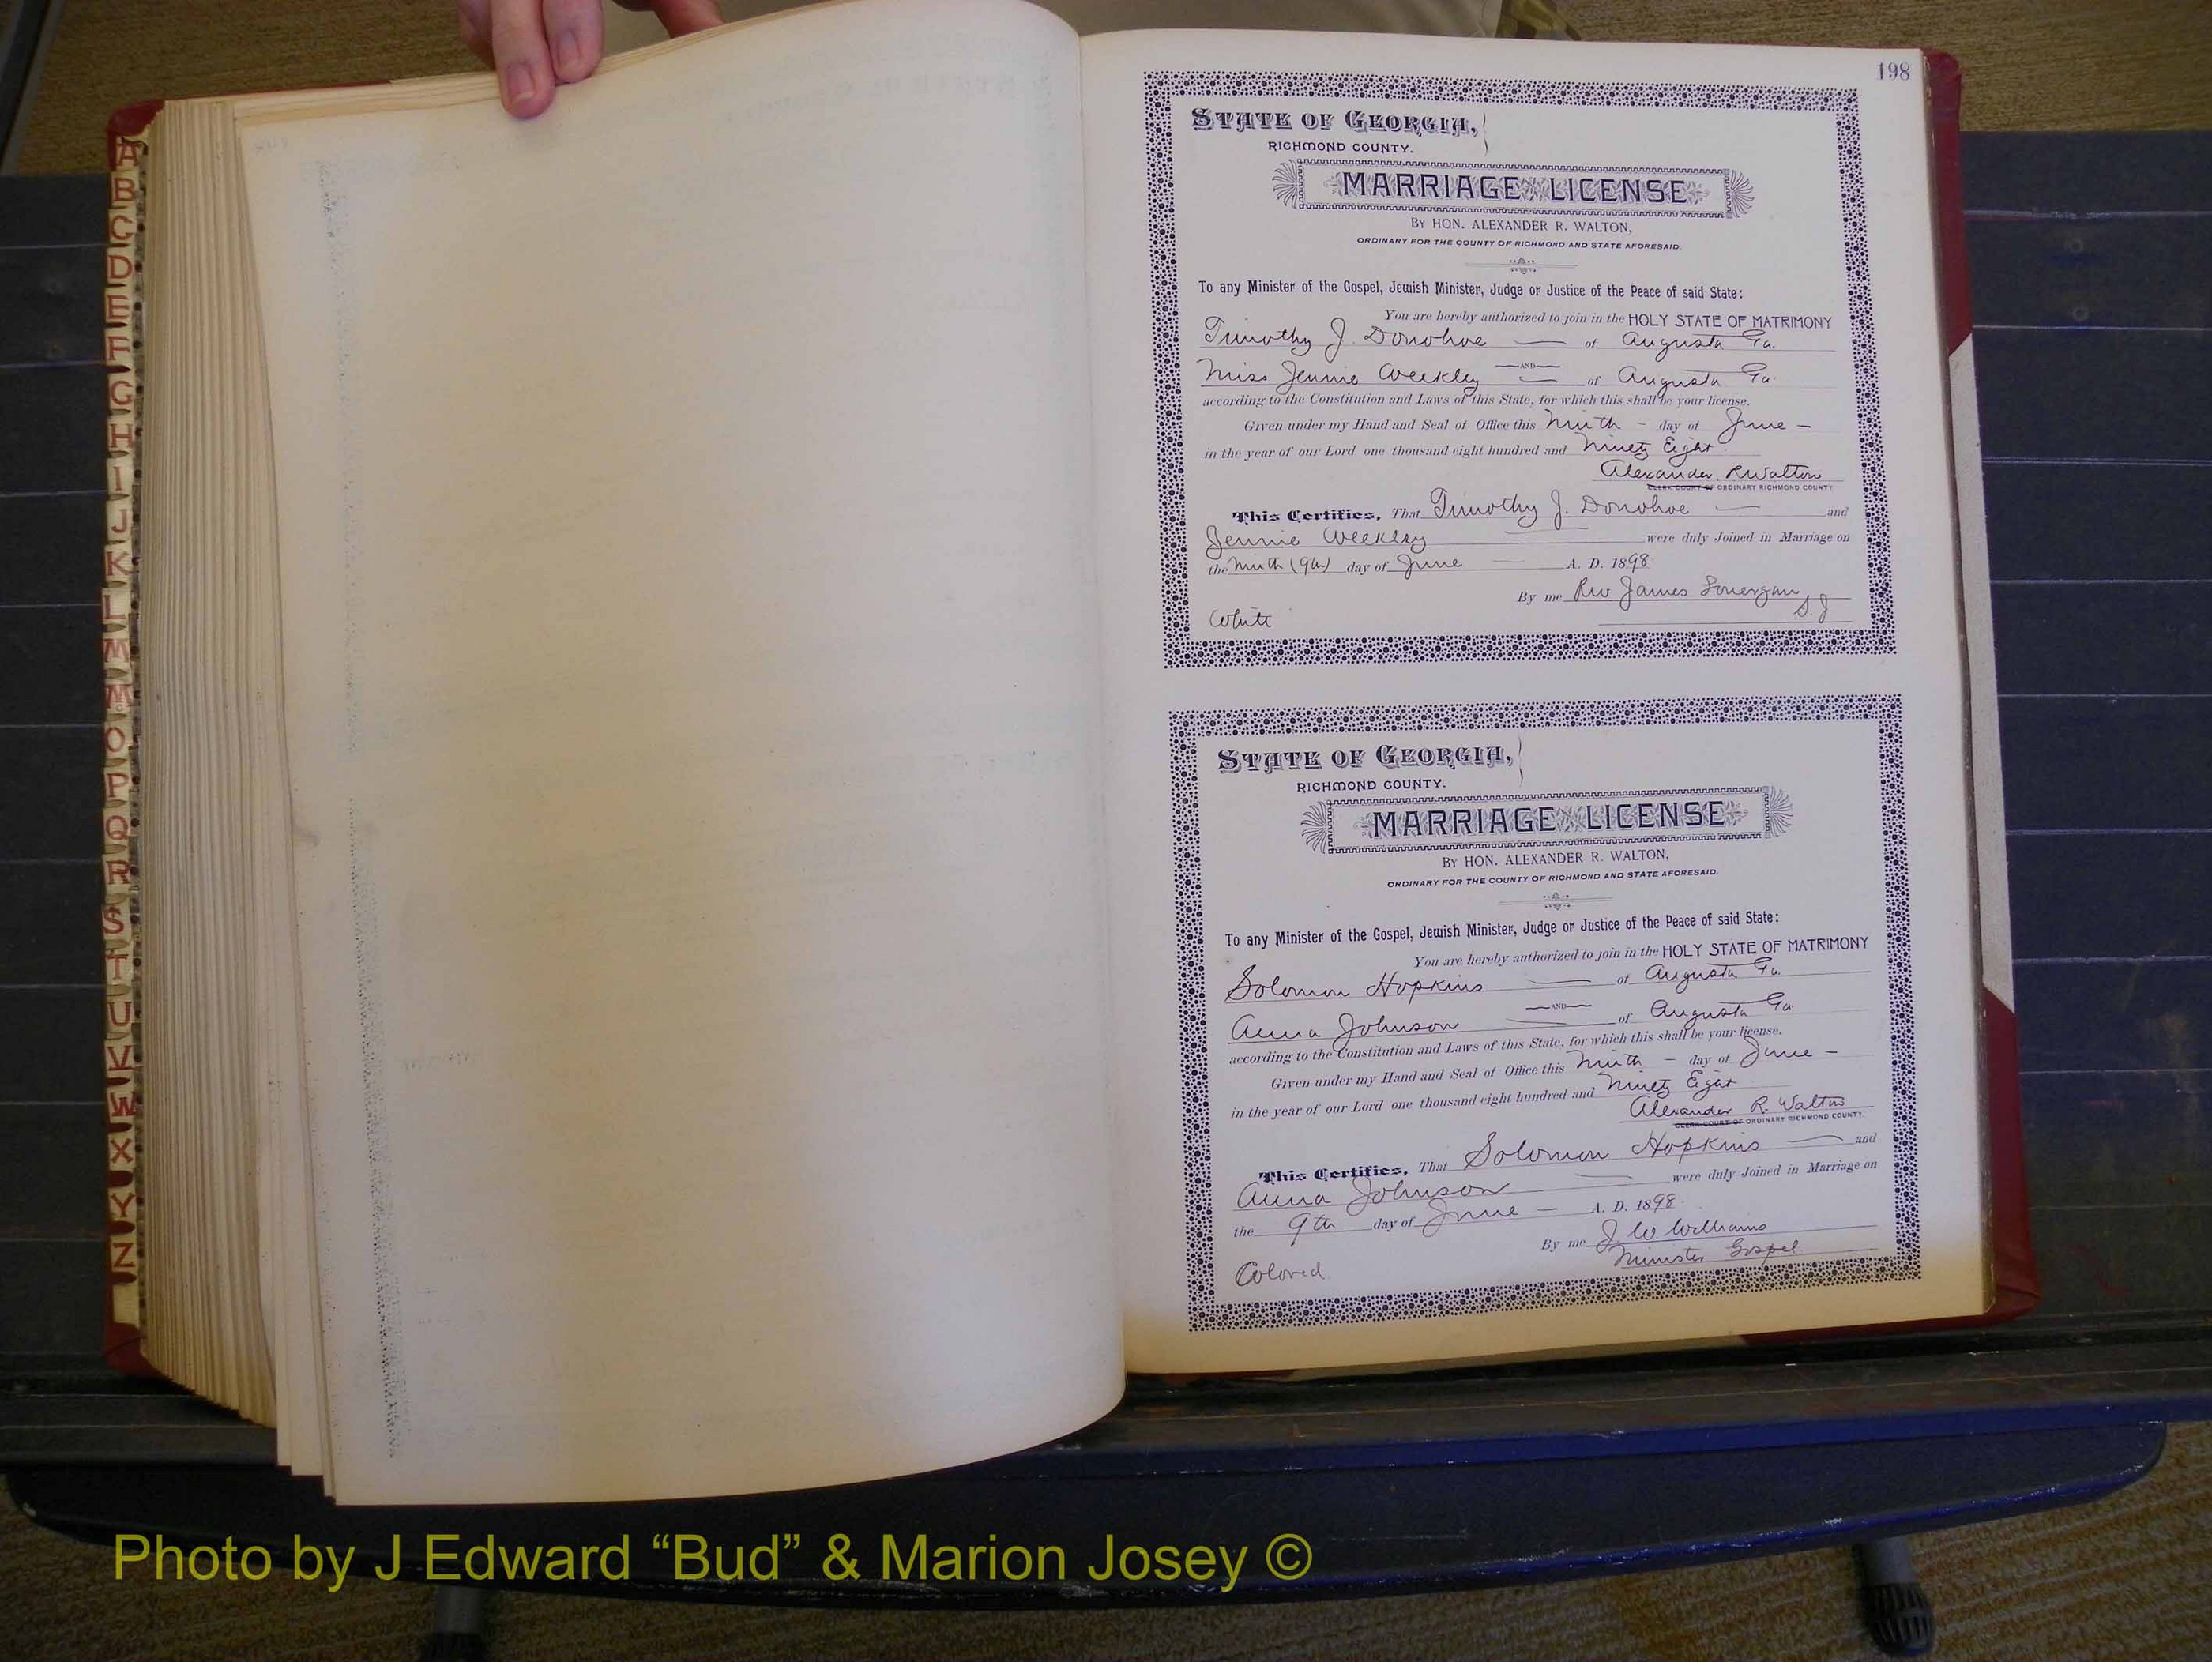 A
B
C
D
E
F
G
H
I
J
K
L
M
Mc
O
P
Q
R
S
T
U
V
W
X
Y
Z
198
STATE OF GEORGIA,
RICHMOND COUNTY.
MARRIAGE LICENSE
BY HON. ALEXANDER R. WALTON,
ORDINARY FOR THE COUNTY OF RICHMOND AND STATE AFORESAID.
To any Minister of the Gospel, Jewish Minister, Judge or Justice of the Peace of said State:
You are hereby authorized to join in the HOLY STATE OF MATRIMONY
Timothy J. Donohoe of Augusta Ga.
AND
Miss Jennie Weekley of Augusta Ga.
according to the Constitution and Laws of this State, for which this shall be your license.
Given under my Hand and Seal of Office this Ninth day of June
in the year of our Lord one thousand eight hundred and Ninety Eight
Alexander R Walton
CLERK COURT OF ORDINARY RICHMOND COUNTY
This Certifies, That Timothy J. Donohoe and
Jennie Weekley were duly Joined in Marriage on
the Ninth (9th) day of June A. D. 1898
By me Rev James Lonergan
S. J
White
STATE OF GEORGIA,
RICHMOND COUNTY.
MARRIAGE LICENSE
BY HON. ALEXANDER R. WALTON,
ORDINARY FOR THE COUNTY OF RICHMOND AND STATE AFORESAID.
To any Minister of the Gospel, Jewish Minister, Judge or Justice of the Peace of said State:
You are hereby authorized to join in the HOLY STATE OF MATRIMONY
Solomon Hopkins of Augusta Ga.
AND
Anna Johnson of Augusta Ga.
according to the Constitution and Laws of this State, for which this shall be your license.
Given under my Hand and Seal of Office this Ninth day of June
in the year of our Lord one thousand eight hundred and Ninety Eight
Alexander R. Walton
CLERK COURT OF ORDINARY RICHMOND COUNTY.
This Certifies, That Solomon Hopkins and
Anna Johnson were duly Joined in Marriage on
the 9th day of June A. D. 1898
By me J. W Williams
Minister Gospel
Colored
Photo by J Edward “Bud” & Marion Josey ©